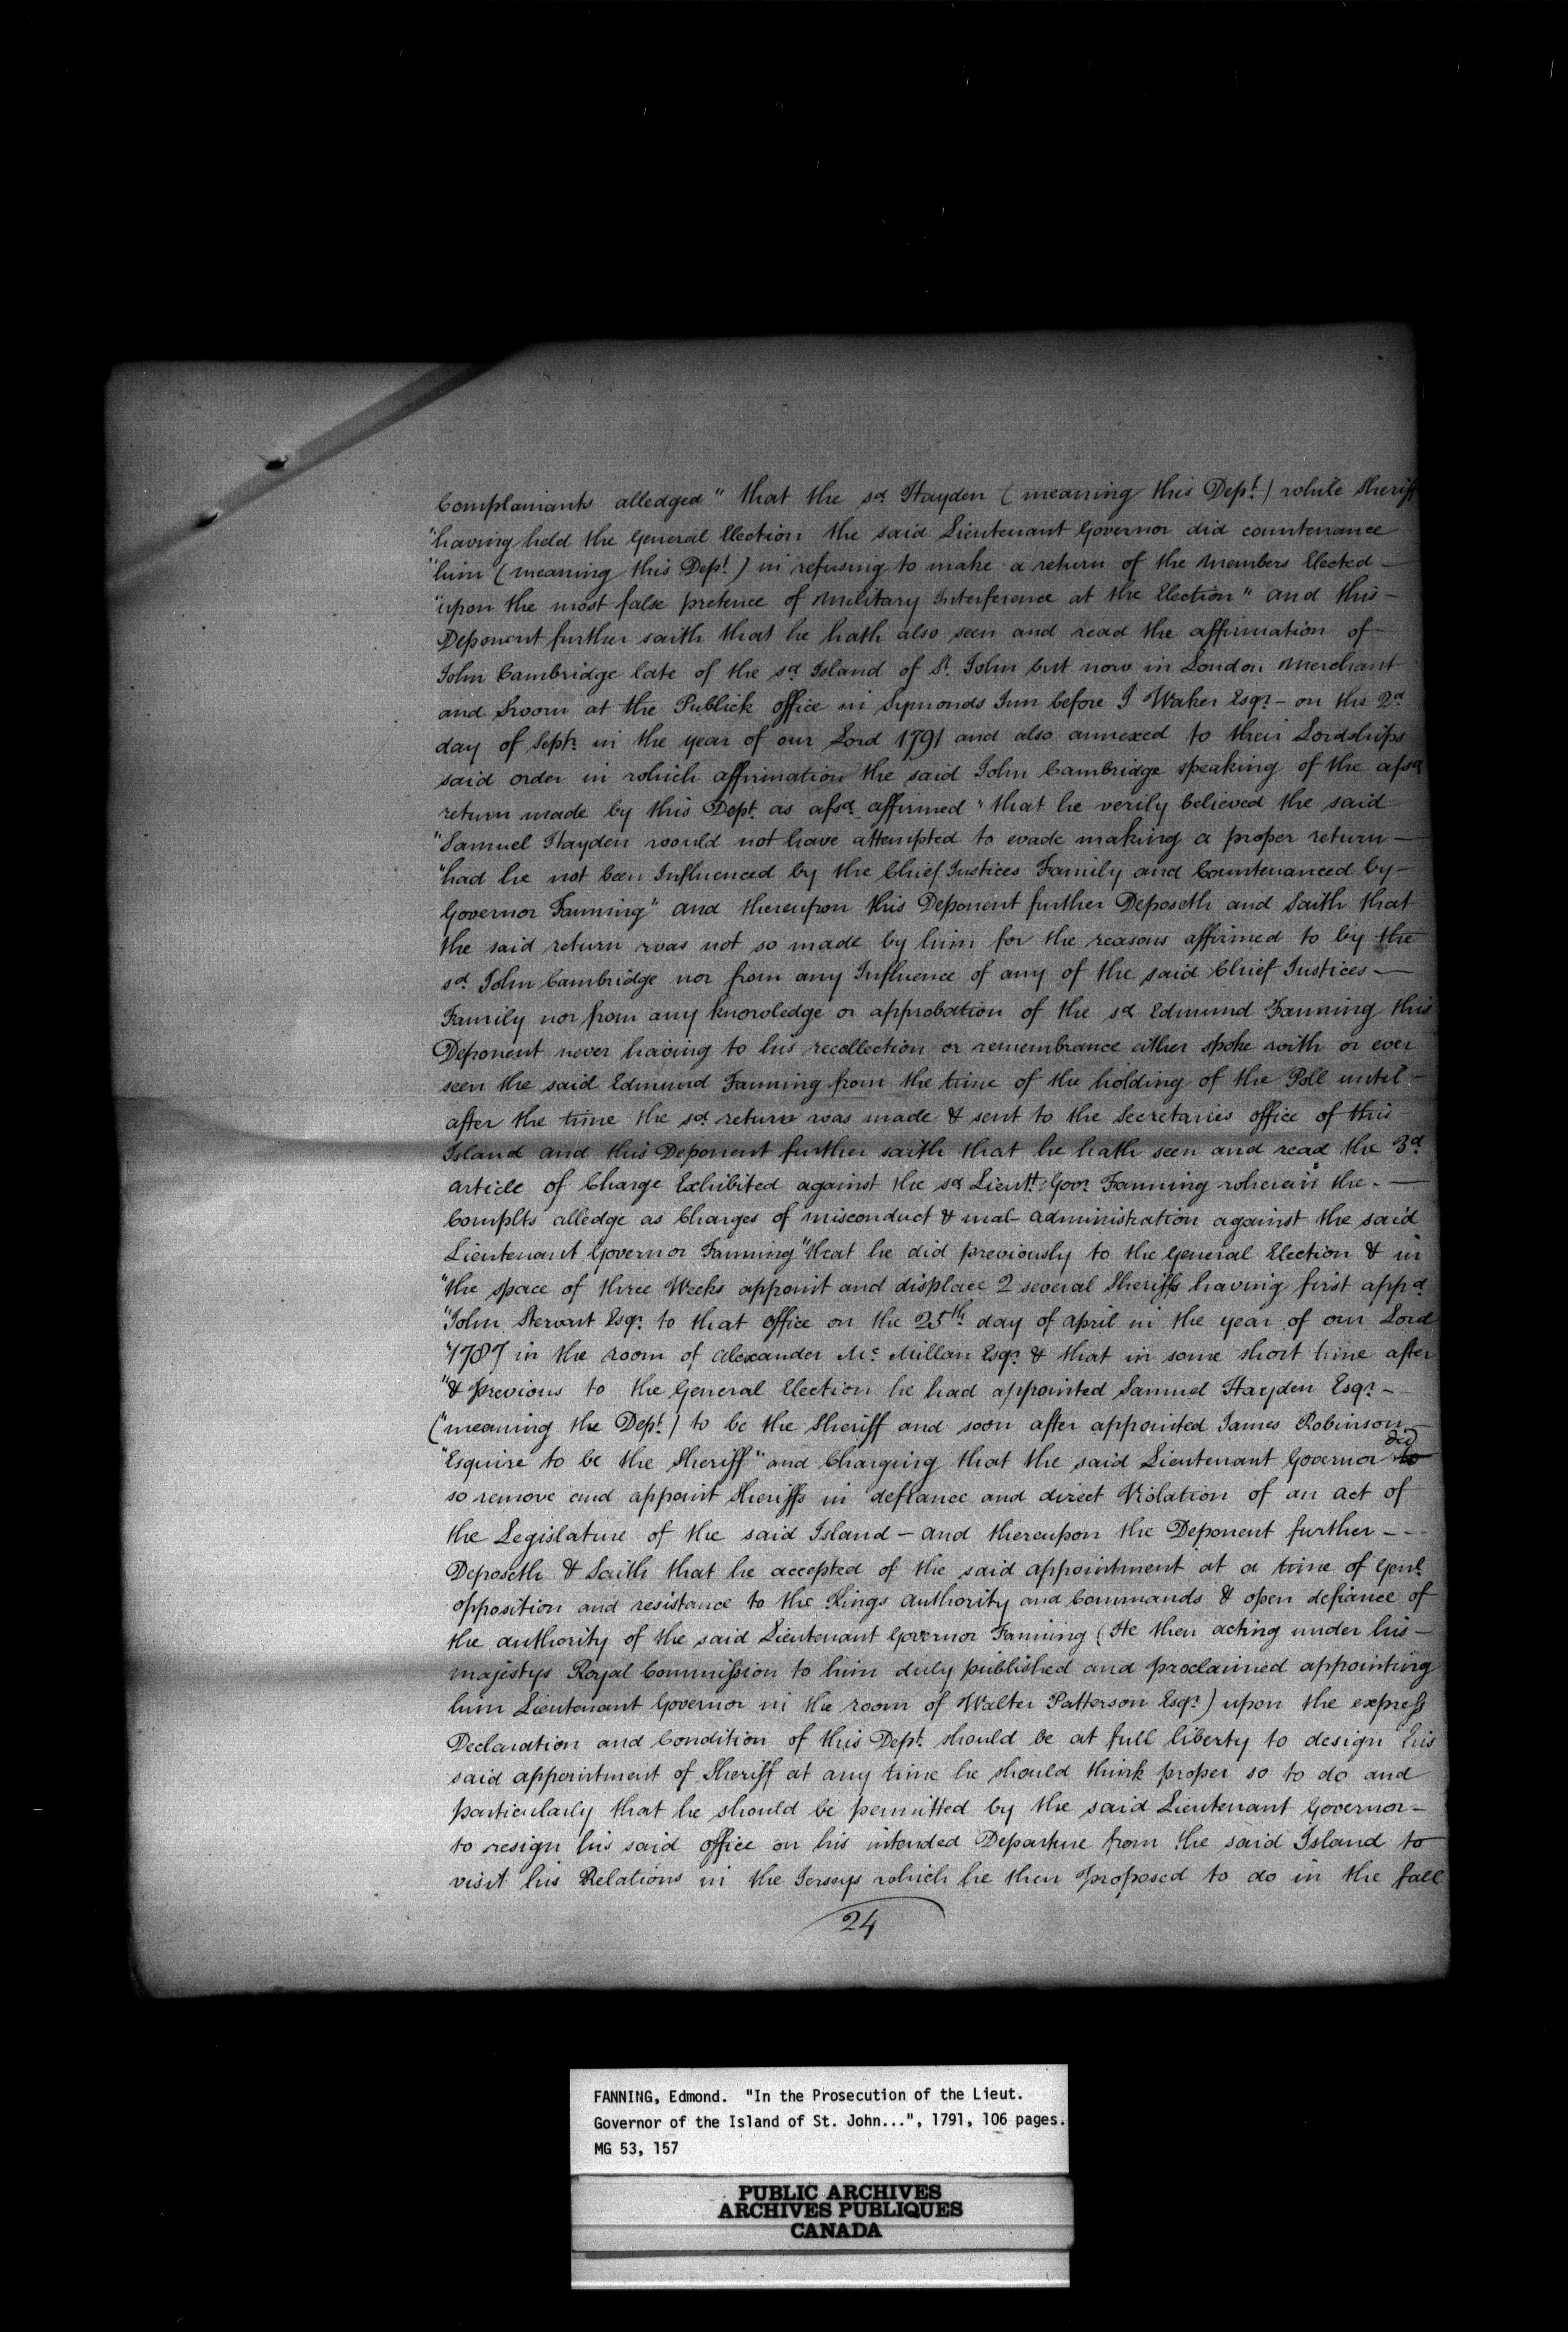 Complainants alledged " that the sd Hayden ( meaning this Dept. ) while Sheriff
"having held the General Election the said Lieutenant Governor did countenance
"him ( meaning this Dept. ) in refusing to make a return of the Members Elected —
"upon the most false pretence of Military Interference at the Election" and this —
Deponent further saith that he hath also seen and read the affirmation of
John Cambridge late of the sd Island of St. John but now in London Merchant
and Sworn at the Publick office in Symonds Inn before J Waker Esqr. – on the 2d
day of Septr. in the year of our Lord 1791 and also annexed to their Lordships
said order in which affirmation the said John Cambridge speaking of the afsd
return made by this Dept. as afsd. affirmed " that he verily believed the said
"Samuel Hayden would not have attempted to evade making a proper return —
"had he not been Influenced by the Chief Justices Family and Countenanced by —
Governor Fanning" and thereupon this Deponent further Deposeth and Saith that
the said return was not so made by him for the reasons affirmed to by the
sd. John Cambridge nor from any Influence of any of the said Chief Justices —
Family nor from any knowledge or approbation of the sd Edmund Fanning this
Deponent never having to his recollection or remembrance either spoke with or ever
seen the said Edmund Fanning from the time of the holding of the Poll until —
after the time the sd. return was made & sent to the Secretaries office of this
Island and this Deponent further saith that he hath seen and read the 3d
article of Charge Exhibited against the sd Lieutt. Govr. Fanning wherein the. —
Complts alledge as Charges of misconduct & mal- administration against the said
Lieutenant Governor Fanning "that he did previously to the General Election & in
"the space of three Weeks appoint and displace 2 several Sheriffs having first appd.
"John Stewart Esqr. to that office on the 25th. day of April in the year of our Lord
"1787 in the room of Alexander Mc. Millan Esqr. & that in some short time after
"& Previous to the General Election he had appointed Samuel Hayden Esqr. –
("meaning the Dept. ) to be the Sheriff and soon after appointed James Robinson —
"Esquire to be the Sheriff" and Charging that the said Lieutenant Governor did
so remove and appoint Sheriffs in defiance and direct Violation of an act of
the Legislature of the said Island – and thereupon the Deponent further – –
Deposeth & Saith that he accepted of the said appointment at a time of Genl.
opposition and resistance to the Kings authority and Commands & open defiance of
the authority of the said Lieutenant Governor Fanning ( He then acting under his —
majestys Royal Commission to him duly published and proclaimed appointing
him Lieutenant Governor in the room of Walter Patterson Esqr. ) upon the express
Declaration and Condition of this Dept. should be at full liberty to design his
said appointment of Sheriff at any time he should think proper so to do and
particularly that he should be permitted by the said Lieutenant Governor –
to resign his said office on his intended Departure from the said Island to
visit his Relations in the Jerseys which he then proposed to do in the fall
24
FANNING, Edmond. "In the Prosecution of the Lieut.
Governor of the Island of St. John...", 1791, 106 pages.
MG 53, 157
PUBLIC ARCHIVES
ARCHIVES PUBLIQUES
CANADA